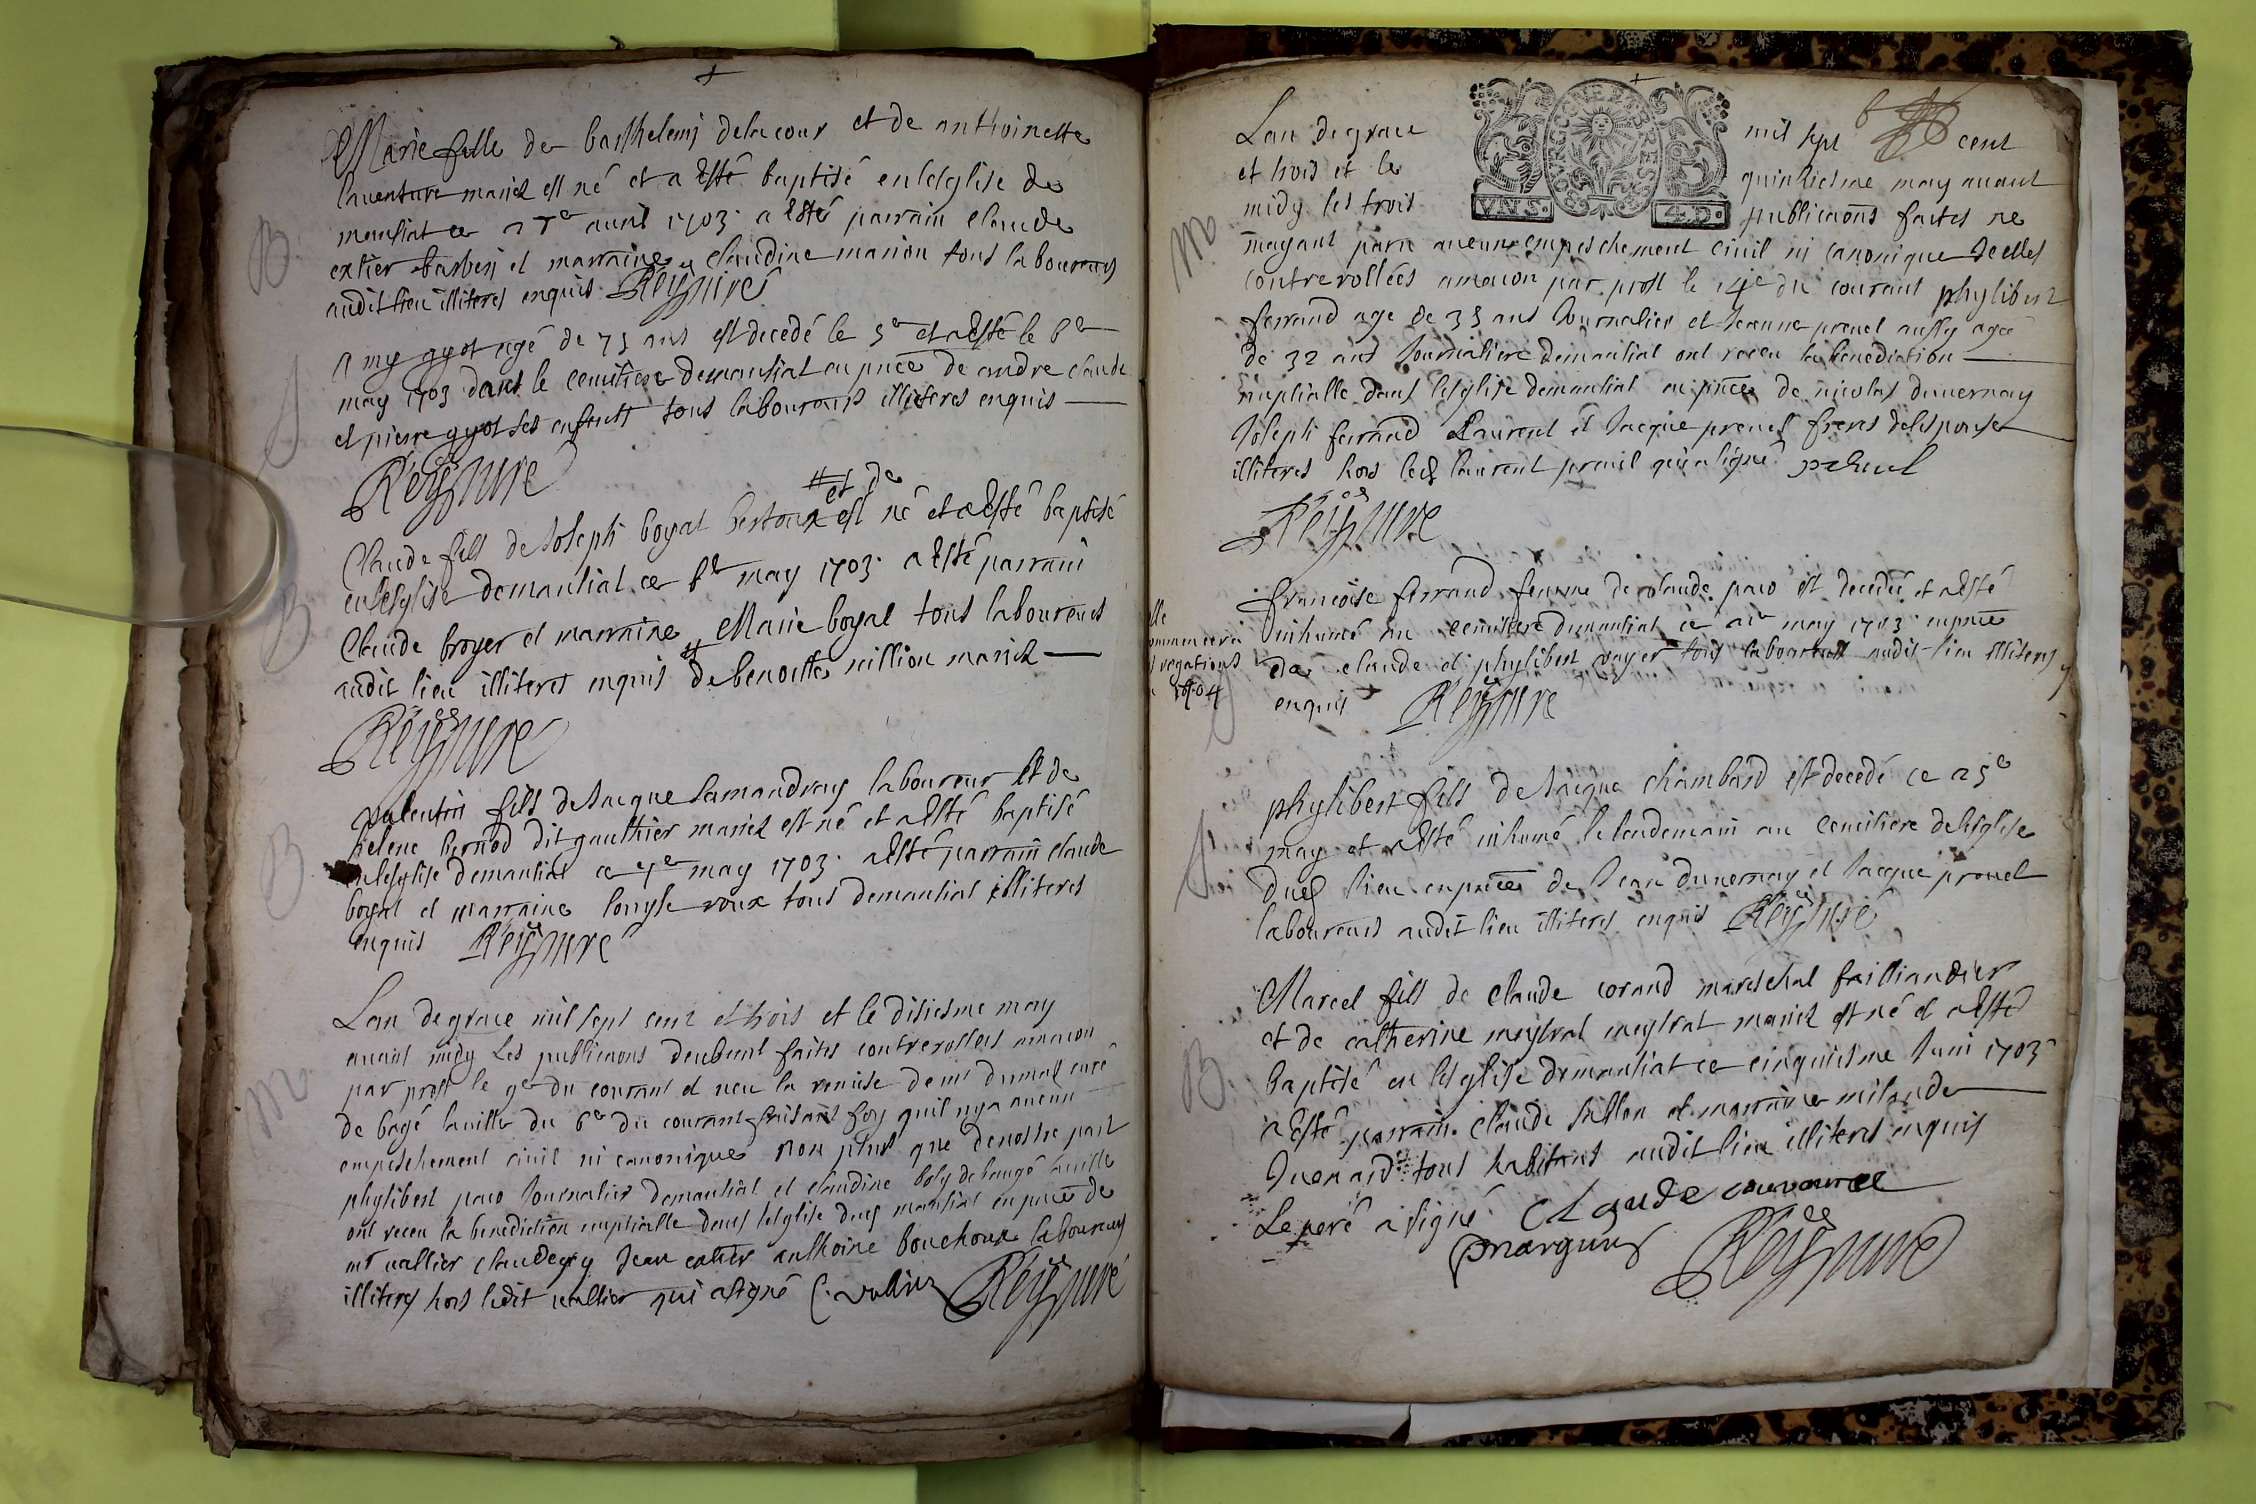 B.
Marie fille de barthelemi delacour et de anthoinette
laventure mariez est né et a esté baptisé en leglise de
mantiat ce 27e avril 1703. a esté parrain claude
catier barbery et marraine claudine manion tous laboureurs
audit lieu illiteres enquis Reyssure
S
Amy gyot agé de 75 ans est decedé le 5e et a esté le 6e
may 1703 dans le cemitiere demantiat en pnce de andre claude
et pierre gyot ses enfants tous laboureurs illiteres enquis
Reyssure
# et de
B
Claude fils de Joseph boyat bertoux est né et a esté baptisé
en leglise demantiat ce 6e may 1703. a esté parrain
Claude broyer et marraine Marie boyat tous laboureurs
audit lieu illiteres enquis # de benoitte million mariez
Reyssure
B
valentin fils de Jacque Lamandray laboureur et de
helene bernod dit gaulthier mariez est né et a esté baptisé
en leglise demantiat ce 7e may 1703. a esté parrain claude
boyat et marraine louyse roux tous demantiat illiteres
enquis Reyssure
M.
Lan de grace mil sept cent et trois et le disiesme may
avant midy Les publicaons deubment faites controrollees amacon
par prost le 9e du courant et veu la remise de mr dumas curé
de bagé laville du 6e du courant faisant foy quil nya aucun
empeschement civil ni canonique non plus que de nostre part
phylibert paco Journalier demantiat et claudine boly de baugé laville
ont receu la benediction nuptialle dans leglise dud mantiat en pnce de
mr vallier claude Jean catier anthoine bouchoux laboureurs
illiteres hors ledit vallier qui a signé C. valier Reyssure
M
Lan de grace mil sept cent
et trois et le quinziesme may avant
midy les trois publicaons faites ne
BOURG.GNE ET BRESSE
VN S. 4 D.
mayant paru aucun empeschement civil ni canonique Jcelles
controrollées amacon par prost le 14e du courant phylibert
ferrand age de 35 ans Journalier et Jeanne prenel aussy agée
de 32 ans Journaliere demantiat ont receu la benediction
nuptialle dans leglise demantiat en pnce de nicolas duvernay
Joseph ferrand Laurent et Jacque prenel freres delespouse
illiteres hors led laurent prenel qui a signé prenel
Reyssure
francoise ferrand femme de claude paco est decedée et a esté
inhumé au cemitiere demantiat ce may 1703 en pnce
de claude et phylibert voyer tous laboureurs audit lieu illiteres
enquis Reyssure
S
phylibert fils de Jacque chambard est decedé ce 25e
may et a esté inhumé le lendemain au cemitiere de leglise
dud lieu en pnce de Jean duvernay et Jacque prenel
laboureurs audit lieu illiteres enquis Reyssure
B.
Marcel fils de claude corand mareschal faillandier
et de catherine meystrat mariez est né et a esté
baptisé en leglise demantiat ce cinquiesme Juin 1703
a esté parrain claude et marraine
tous habitans audit lieu illiteres enquis
Le peré a signé Claude
Reyssure